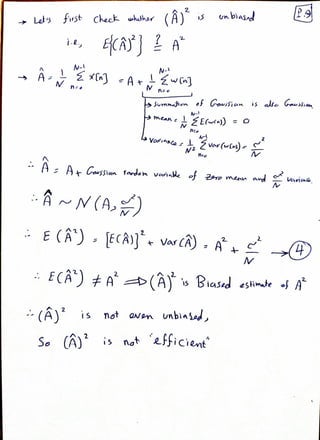 P.9
→ Let's first check whether (Â)² is unbiased
i.e, E{(Â)²} ?= A²
→ Â = 1/N Σ_{n=0}^{N-1} x[n] = A + 1/N Σ_{n=0}^{N-1} w[n]
→ Summation of Gaussian is also Gaussian
→ mean = 1/N Σ_{n=0}^{N-1} E(w[n]) = 0
→ Variance = 1/N² Σ_{n=0}^{N-1} var(w[n]) = σ²/N
∴ Â = A + Gaussian random variable of zero mean and σ²/N variance
∴ Â ~ N(A, σ²/N)
∴ E(Â²) = [E(Â)]² + var(Â) = A² + σ²/N → ④
∴ E(Â²) ≠ A² ⟹ (Â)² is Biased estimate of A²
∴ (Â)² is not even unbiased,
So (Â)² is not "efficient"